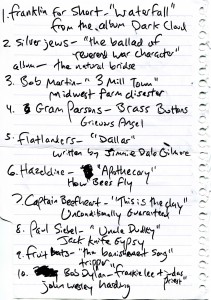 1. franklin for Short - "Waterfall"
from the album Dark Cloud
2. Silver Jews - "the ballad of
reverend war character"
album - the natural bridge
3. Bob Martin - "3 Mill Town"
midwest farm disaster
4. Gram Parsons - Brass Buttons
Grievous Angel
5. Flatlanders - "Dallas"
written by Jimmie Dale Gilmore
6. Hazeldine - "Apothecary"
How Bees Fly
7. Captain Beefheart - "This is the day"
Unconditionally Guaranteed
8. Paul Siebel - "Uncle Dudley"
Jack knife Gypsy
9. fruit bats - "the banishment song"
tripper
10. Bob Dylan - frankie lee + judas
priest"
John wesley harding